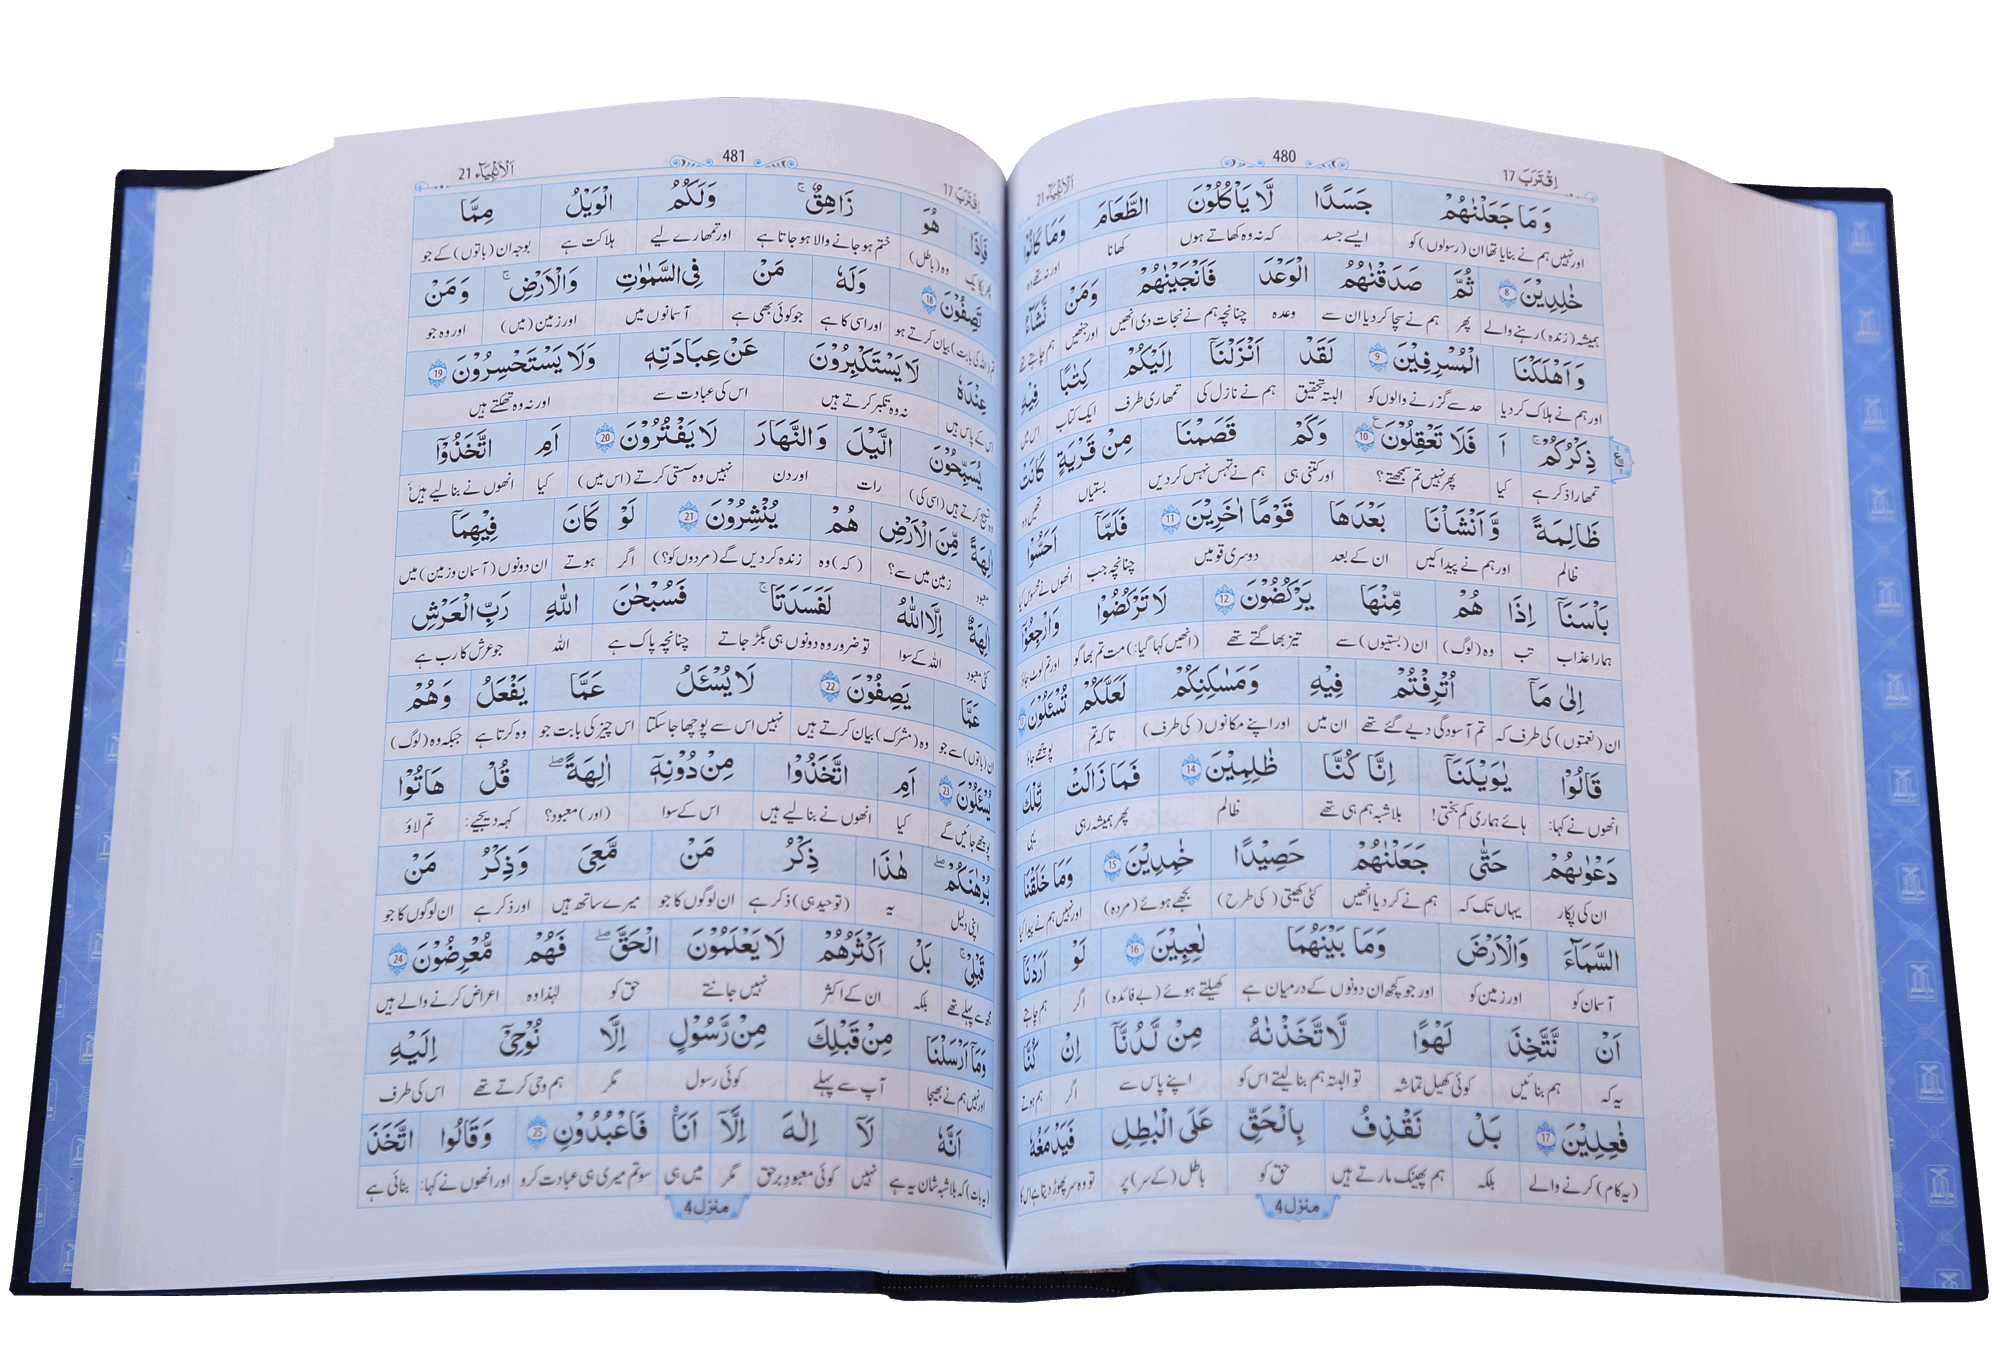 اِقْتَرَبَ 17
480
اَلْاَنْۢبِيَآء 21
وَ مَا جَعَلْنٰهُمْ جَسَدًا لَّا يَاْكُلُوْنَ الطَّعَامَ وَمَا كَانُوْا
اور نہیں ہم نے بنایا تھا ان (رسولوں) کو ایسے جسد کہ نہ وہ کھاتے ہوں کھانا اور نہ تھے وہ
خٰلِدِيْنَ 8 ثُمَّ صَدَقْنٰهُمُ الْوَعْدَ فَاَنْجَيْنٰهُمْ وَمَنْ نَّشَآءُ
ہمیشہ (زندہ) رہنے والے پھر ہم نے سچا کر دیا ان سے وعدہ چنانچہ ہم نے نجات دی انھیں اور جنھیں ہم چاہتے تھے
وَ اَهْلَكْنَا الْمُسْرِفِيْنَ 9 لَقَدْ اَنْزَلْنَاۤ اِلَيْكُمْ كِتٰبًا فِيْهِ
اور ہم نے ہلاک کر دیا حد سے گزرنے والوں کو البتہ تحقیق ہم نے نازل کی تمھاری طرف ایک کتاب اس میں
ذِكْرُكُمْ ۚ اَ فَلَا تَعْقِلُوْنَ 10 وَكَمْ قَصَمْنَا مِنْ قَرْيَةٍ كَانَتْ
تمھارا ذکر ہے کیا پھر نہیں تم سمجھتے؟ اور کتنی ہی ہم نے تہس نہس کر دیں بستیاں تھیں وہ
ظَالِمَةً وَّ اَنْشَاْنَا بَعْدَهَا قَوْمًا اٰخَرِيْنَ 11 فَلَمَّاۤ اَحَسُّوْا
ظالم اور ہم نے پیدا کیں ان کے بعد دوسری قومیں چنانچہ جب انھوں نے محسوس کیا
بَاْسَنَاۤ اِذَا هُمْ مِّنْهَا يَرْكُضُوْنَ 12 لَا تَرْكُضُوْا وَارْجِعُوْۤا
ہمارا عذاب تب وہ (لوگ) ان (بستیوں) سے تیز بھاگتے تھے (انھیں کہا گیا:) مت تم بھاگو اور تم لوٹ جاؤ
اِلٰى مَاۤ اُتْرِفْتُمْ فِيْهِ وَمَسٰكِنِكُمْ لَعَلَّكُمْ تُسْـَٔلُوْنَ 13
ان (نعمتوں) کی طرف کہ تم آسودگی دیے گئے تھے ان میں اور اپنے مکانوں (کی طرف) تاکہ تم پوچھے جاؤ
قَالُوْا يٰوَيْلَنَاۤ اِنَّا كُنَّا ظٰلِمِيْنَ 14 فَمَا زَالَتْ تِّلْكَ
انھوں نے کہا: ہائے ہماری کم بختی! بلاشبہ ہم ہی تھے ظالم پھر ہمیشہ رہی یہی
دَعْوٰىهُمْ حَتّٰى جَعَلْنٰهُمْ حَصِيْدًا خٰمِدِيْنَ 15 وَمَا خَلَقْنَا
ان کی پکار یہاں تک کہ ہم نے کر دیا انھیں کٹی کھیتی (کی طرح) بجھے ہوئے (مردہ) اور نہیں ہم نے پیدا کیا
السَّمَآءَ وَالْاَرْضَ وَمَا بَيْنَهُمَا لٰعِبِيْنَ 16 لَوْ اَرَدْنَاۤ
آسمان کو اور زمین کو اور جو کچھ ان دونوں کے درمیان ہے کھیلتے ہوئے (بے فائدہ) اگر ہم چاہتے
اَنْ نَّتَّخِذَ لَهْوًا لَّا تَّخَذْنٰهُ مِنْ لَّدُنَّاۤ اِنْ كُنَّا
یہ کہ ہم بنائیں کوئی کھیل تماشہ تو البتہ ہم بنا لیتے اس کو اپنے پاس سے اگر ہم ہوتے
فٰعِلِيْنَ 17 بَلْ نَقْذِفُ بِالْحَقِّ عَلَى الْبٰطِلِ فَيَدْمَغُهٗ
(یہ کام) کرنے والے بلکہ ہم پھینک مارتے ہیں حق کو باطل (کے سر) پر تو وہ سر پھوڑ دیتا ہے اس کا
منزل 4
اِقْتَرَبَ 17
481
اَلْاَنْۢبِيَآء 21
فَاِذَا هُوَ زَاهِقٌ ۚ وَلَكُمُ الْوَيْلُ مِمَّا
پھر یکایک وہ (باطل) ختم ہو جانے والا ہو جاتا ہے اور تمھارے لیے ہلاکت ہے بوجہ ان (باتوں) کے جو
تَصِفُوْنَ 18 وَلَهٗ مَنْ فِى السَّمٰوٰتِ وَالْاَرْضِ ۚ وَمَنْ
تم (اللہ کی بابت) بیان کرتے ہو اور اسی کا ہے جو کوئی بھی ہے آسمانوں میں اور زمین (میں) اور وہ جو
عِنْدَهٗ لَا يَسْتَكْبِرُوْنَ عَنْ عِبَادَتِهٖ وَلَا يَسْتَحْسِرُوْنَ 19
اس کے پاس ہیں نہ وہ تکبر کرتے ہیں اس کی عبادت سے اور نہ وہ تھکتے ہیں
يُسَبِّحُوْنَ الَّيْلَ وَالنَّهَارَ لَا يَفْتُرُوْنَ 20 اَمِ اتَّخَذُوْۤا
وہ تسبیح کرتے ہیں (اسی کی) رات اور دن نہیں وہ سستی کرتے (اس میں) کیا انھوں نے بنا لیے ہیں
اٰلِهَةً مِّنَ الْاَرْضِ هُمْ يُنْشِرُوْنَ 21 لَوْ كَانَ فِيْهِمَاۤ
معبود زمین میں سے؟ (کہ) وہ زندہ کر دیں گے (مردوں کو؟) اگر ہوتے ان دونوں (آسمان و زمین) میں
اٰلِهَةٌ اِلَّا اللّٰهُ لَفَسَدَتَا ۚ فَسُبْحٰنَ اللّٰهِ رَبِّ الْعَرْشِ
کئی معبود اللہ کے سوا تو ضرور وہ دونوں ہی بگڑ جاتے چنانچہ پاک ہے اللہ جو عرش کا رب ہے
عَمَّا يَصِفُوْنَ 22 لَا يُسْـَٔلُ عَمَّا يَفْعَلُ وَهُمْ
ان (باتوں) سے جو وہ (مشرک) بیان کرتے ہیں نہیں اس سے پوچھا جا سکتا اس چیز کی بابت جو وہ کرتا ہے جبکہ وہ (لوگ)
يُسْـَٔلُوْنَ 23 اَمِ اتَّخَذُوْا مِنْ دُوْنِهٖۤ اٰلِهَةً ؕ قُلْ هَاتُوْا
پوچھے جائیں گے کیا انھوں نے بنا لیے ہیں اس کے سوا (اور) معبود؟ کہہ دیجیے: تم لاؤ
بُرْهٰنَكُمْ ۚ هٰذَا ذِكْرُ مَنْ مَّعِىَ وَذِكْرُ مَنْ
اپنی دلیل یہ (توحید ہی) ذکر ہے ان لوگوں کا جو میرے ساتھ ہیں اور ذکر ہے ان لوگوں کا جو
قَبْلِىْ ؕ بَلْ اَكْثَرُهُمْ لَا يَعْلَمُوْنَ الْحَقَّ فَهُمْ مُّعْرِضُوْنَ 24
مجھ سے پہلے تھے بلکہ ان کے اکثر نہیں جانتے حق کو لہٰذا وہ اعراض کرنے والے ہیں
وَمَاۤ اَرْسَلْنَا مِنْ قَبْلِكَ مِنْ رَّسُوْلٍ اِلَّا نُوْحِىْۤ اِلَيْهِ
اور نہیں ہم نے بھیجا آپ سے پہلے کوئی رسول مگر ہم وحی کرتے تھے اس کی طرف
اَنَّهٗ لَاۤ اِلٰهَ اِلَّاۤ اَنَا۠ فَاعْبُدُوْنِ 25 وَقَالُوا اتَّخَذَ
(یہ بات) کہ بلاشبہ شان یہ ہے نہیں کوئی معبودِ برحق مگر میں ہی سو تم میری ہی عبادت کرو اور انھوں نے کہا: بنائی ہے
منزل 4